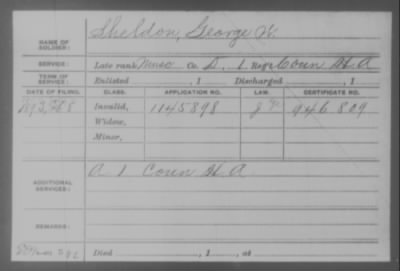 NAME OF SOLDIER: Sheldon, George W.
SERVICE: Late rank Musc Co. D, 1 Reg't Conn H. A
TERM OF SERVICE: Enlisted , 1 Discharged , 1
DATE OF FILING. CLASS. APPLICATION NO. LAW. CERTIFICATE NO.
Invalid, 1145898 946 809
Widow,
Minor,
ADDITIONAL SERVICES: A 1 Conn H A.
REMARKS:
Died , 1 , at